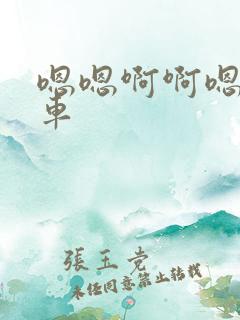 嗯嗯啊啊嗯
車
張玉党
未经同意禁止转载